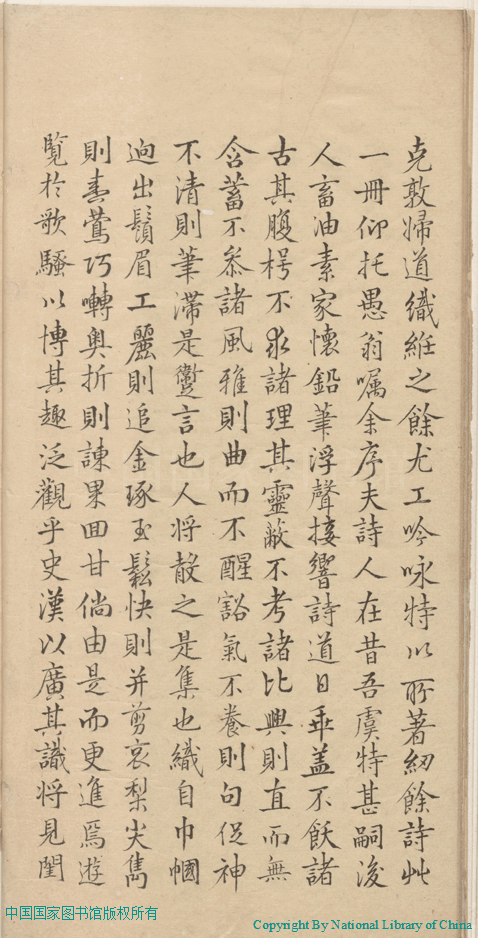 克敦婦道織絍之餘尤工吟咏特以所著紉餘詩艸
一冊仰托愚翁嘱余序夫詩人在昔吾虞特甚嗣後
人畜油素家懷鉛筆浮聲接響詩道日乖盖不飫諸
古其腹枵不求諸理其靈蔽不考諸比興則直而無
含蓄不叅諸風雅則曲而不醒豁氣不養則句促神
不清則筆滯是虀言也人將敲之是集也織自巾幗
逈出鬚眉工麗則追金琢玉鬆快則并剪哀梨尖雋
則春鶯巧囀奥折則諫果回甘倘由是而更進焉遊
覽於歌騷以博其趣泛觀乎史漢以廣其識將見閨
中国国家图书馆版权所有
Copyright By National Library of China